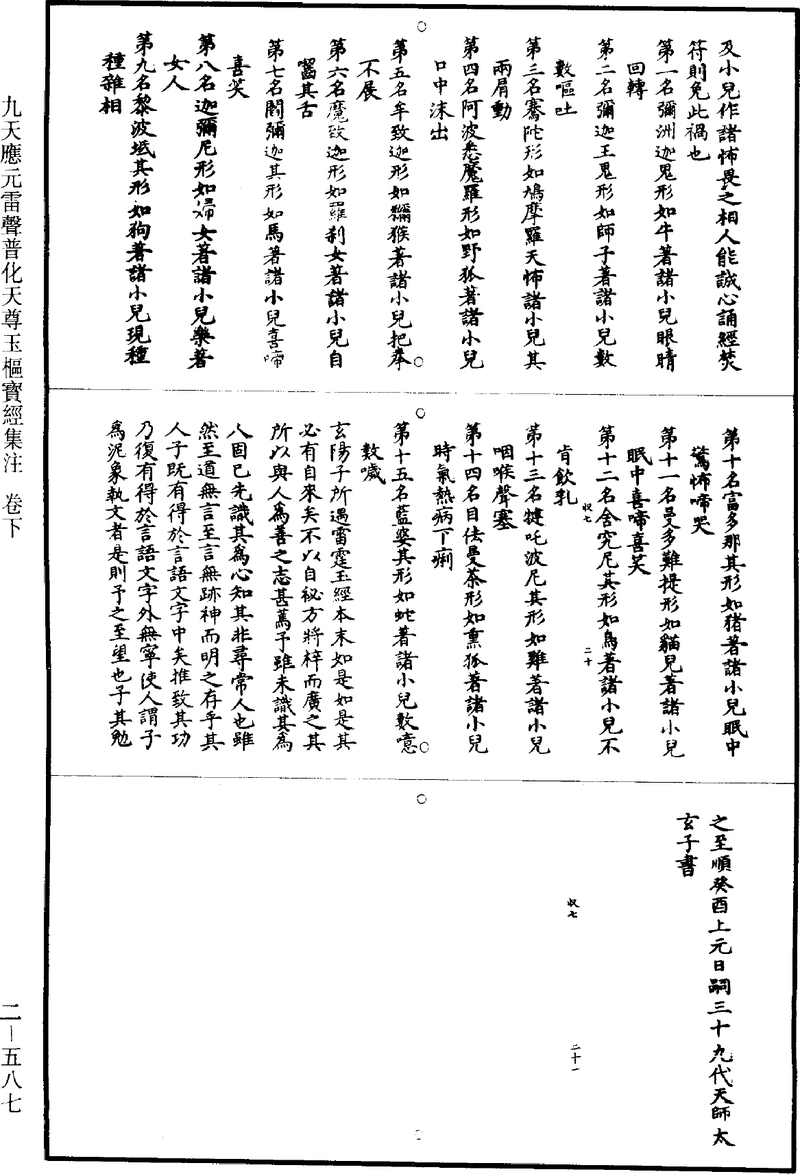 及小兒作諸怖畏之相人能誠心誦經焚
符則免此禍也
第一名彌洲迦鬼形如牛著諸小兒眼睛
回轉
第二名彌迦王鬼形如師子著諸小兒數
數嘔吐
第三名騫陀形如鳩摩羅天怖諸小兒其
兩肩動
第四名阿波悉魔羅形如野狐著諸小兒
口中沫出
第五名牟致迦形如獼猴著諸小兒把拳
不展
第六名魔致迦形如羅刹女著諸小兒自
齧其舌
第七名閻彌迦其形如馬著諸小兒喜啼
喜笑
第八名迦彌尼形如婦女著諸小兒樂著
女人
第九名黎波坻其形如狗著諸小兒現種
種雜相
第十名富多那其形如猪著諸小兒眠中
驚怖啼哭
第十一名曼多難提形如貓兒著諸小兒
眠中喜啼喜笑
收七
二十
第十二名舍究尼其形如鳥著諸小兒不
肯飲乳
第十三名犍吒波尼其形如雞著諸小兒
咽喉聲塞
第十四名目佉曼荼形如熏狐著諸小兒
時氣熱病下痢
第十五名藍婆其形如蛇著諸小兒數噫
數噦
玄陽子所遇雷霆玉經本末如是如是其
必有自來矣不以自秘方將梓而廣之其
所以與人爲善之志甚篤予雖未識其爲
人固已先識其爲心知其非尋常人也雖
然至道無言至言無跡神而明之存乎其
人子既有得於言語文字中矣推致其功
乃復有得於言語文字外無寧使人謂子
爲泥象執文者是則予之至望也子其勉
之至順癸酉上元日嗣三十九代天師太
玄子書
收七
二十一
九天應元雷聲普化天尊玉樞寶經集注 卷下
二—五八七